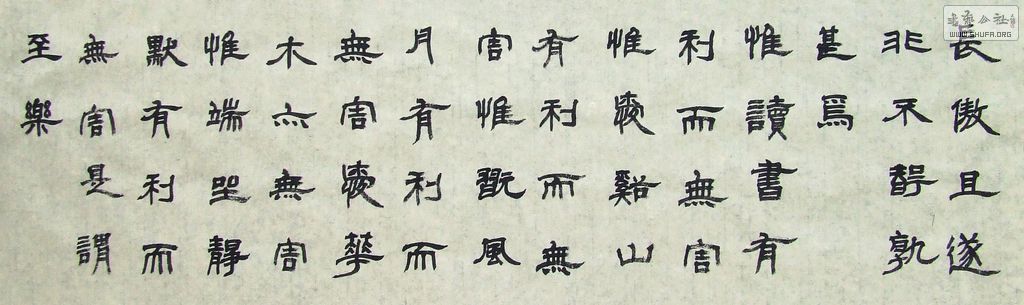 長傲且遂
非不智孰
甚焉
惟讀書有
利而無害
惟愛谿山
有利而無
害惟翫風
月有利而
無害愛華
木亦無害
惟端坐靜
默有利而
無害是謂
至樂
書藝公社
WWW.SHUFA.ORG